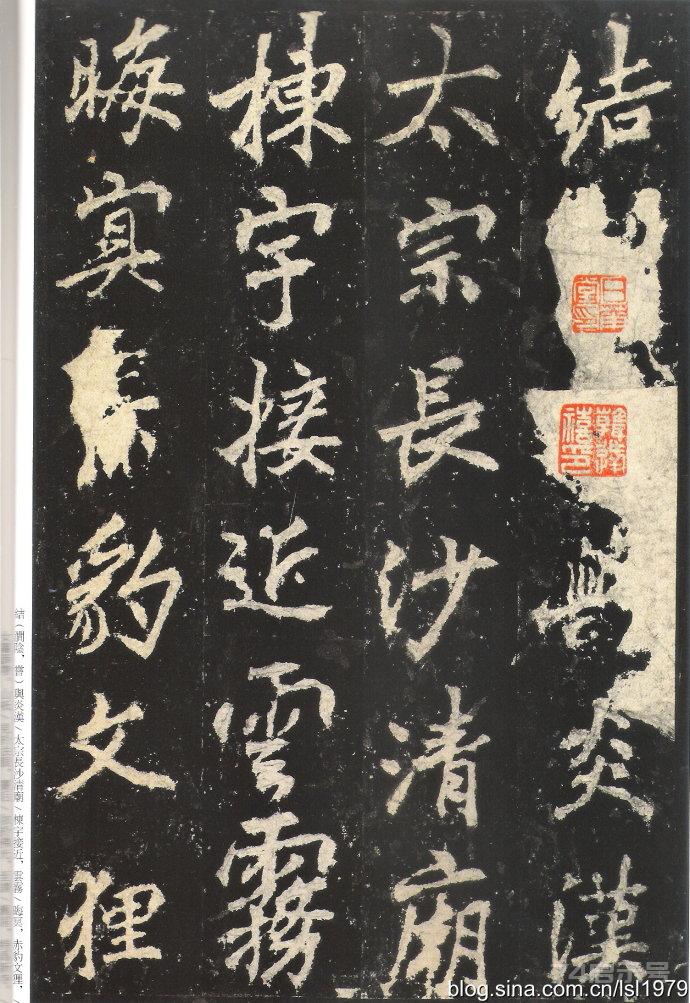 結與炎漢
太宗長沙清廟
棟宇接近雲霧
晦冥赤豹文狸
結(澗陰,嘗)與炎漢/太宗長沙清廟/棟宇接近,雲霧/晦冥,赤豹文狸,/
blog.sina.com.cn/lsl1979